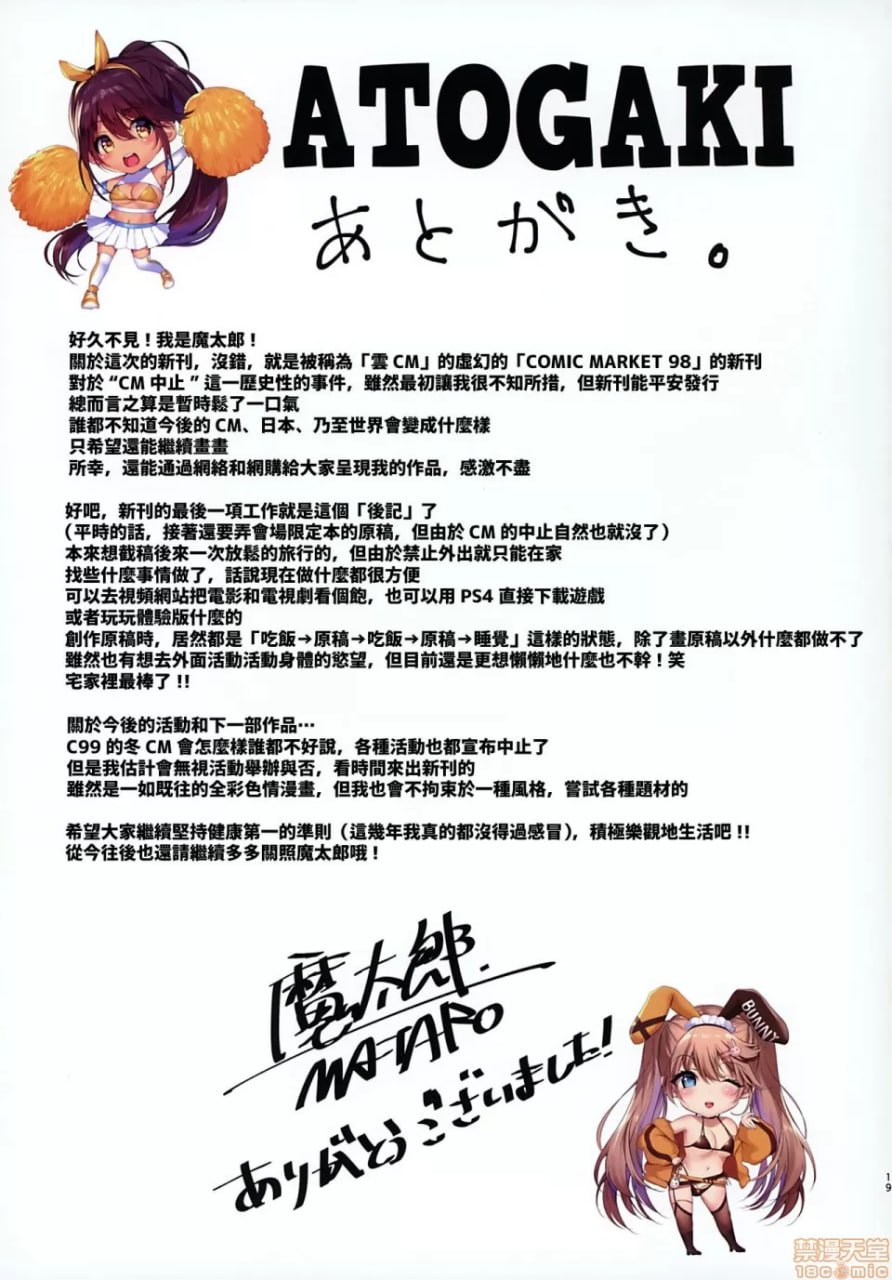 ATOGAKI
あとがき。
好久不見！我是魔太郎！
關於這次的新刊，沒錯，就是被稱為「雲CM」的虛幻的「COMIC MARKET 98」的新刊
對於“CM中止”這一歷史性的事件，雖然最初讓我很不知所措，但新刊能平安發行
總而言之算是暫時鬆了一口氣
誰都不知道今後的CM、日本、乃至世界會變成什麼樣
只希望還能繼續畫畫
所幸，還能通過網絡和網購給大家呈現我的作品，感激不盡
好吧，新刊的最後一項工作就是這個「後記」了
（平時的話，接著還要弄會場限定本的原稿，但由於CM的中止自然也就沒了）
本來想截稿後來一次放鬆的旅行的，但由於禁止外出就只能在家
找些什麼事情做了，話說現在做什麼都很方便
可以去視頻網站把電影和電視劇看個飽，也可以用PS4直接下載遊戲
或者玩玩體驗版什麼的
創作原稿時，居然都是「吃飯→原稿→吃飯→原稿→睡覺」這樣的狀態，除了畫原稿以外什麼都做不了
雖然也有想去外面活動活動身體的慾望，但目前還是更想懶懶地什麼也不幹！笑
宅家裡最棒了!!
關於今後的活動和下一部作品…
C99的冬CM會怎麼樣誰都不好說，各種活動也都宣布中止了
但是我估計會無視活動舉辦與否，看時間來出新刊的
雖然是一如既往的全彩色情漫畫，但我也會不拘束於一種風格，嘗試各種題材的
希望大家繼續堅持健康第一的準則（這幾年我真的都沒得過感冒），積極樂觀地生活吧!!
從今往後也還請繼續多多關照魔太郎哦！
魔太郎.
MATARO
ありがとうございました!
BUNNY
19
禁漫天堂
18comic